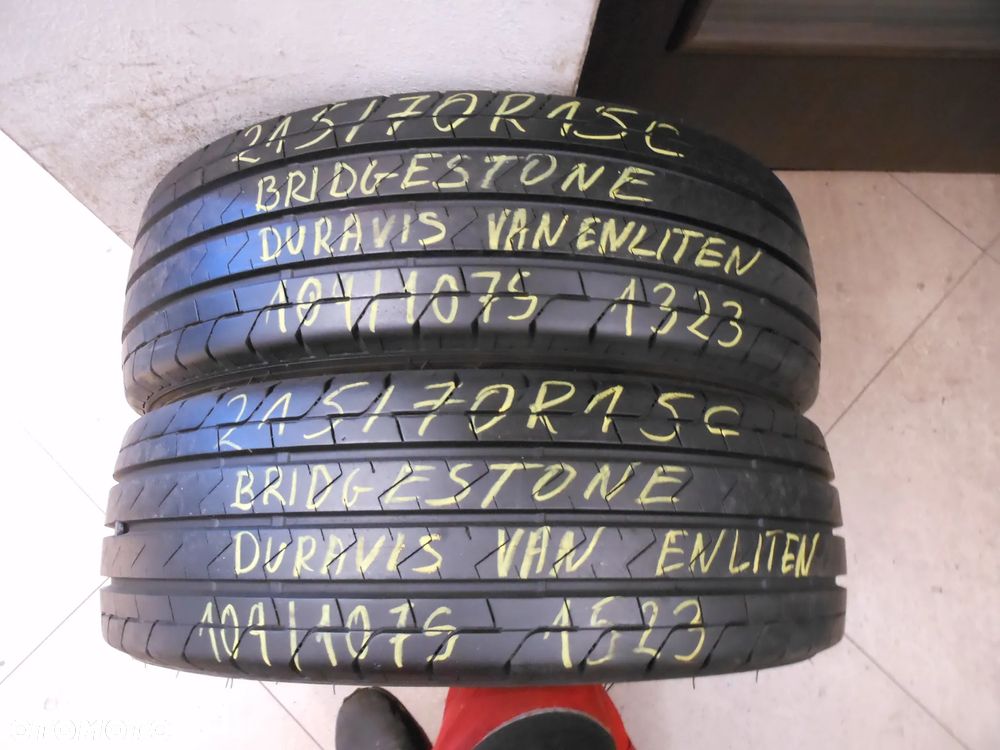 215/70R15C
BRIDGESTONE
DURAVIS VAN ENLITEN
104/107S 1323
215/70R15C
BRIDGESTONE
DURAVIS VAN ENLITEN
104/107S 1523
OTOMOTO